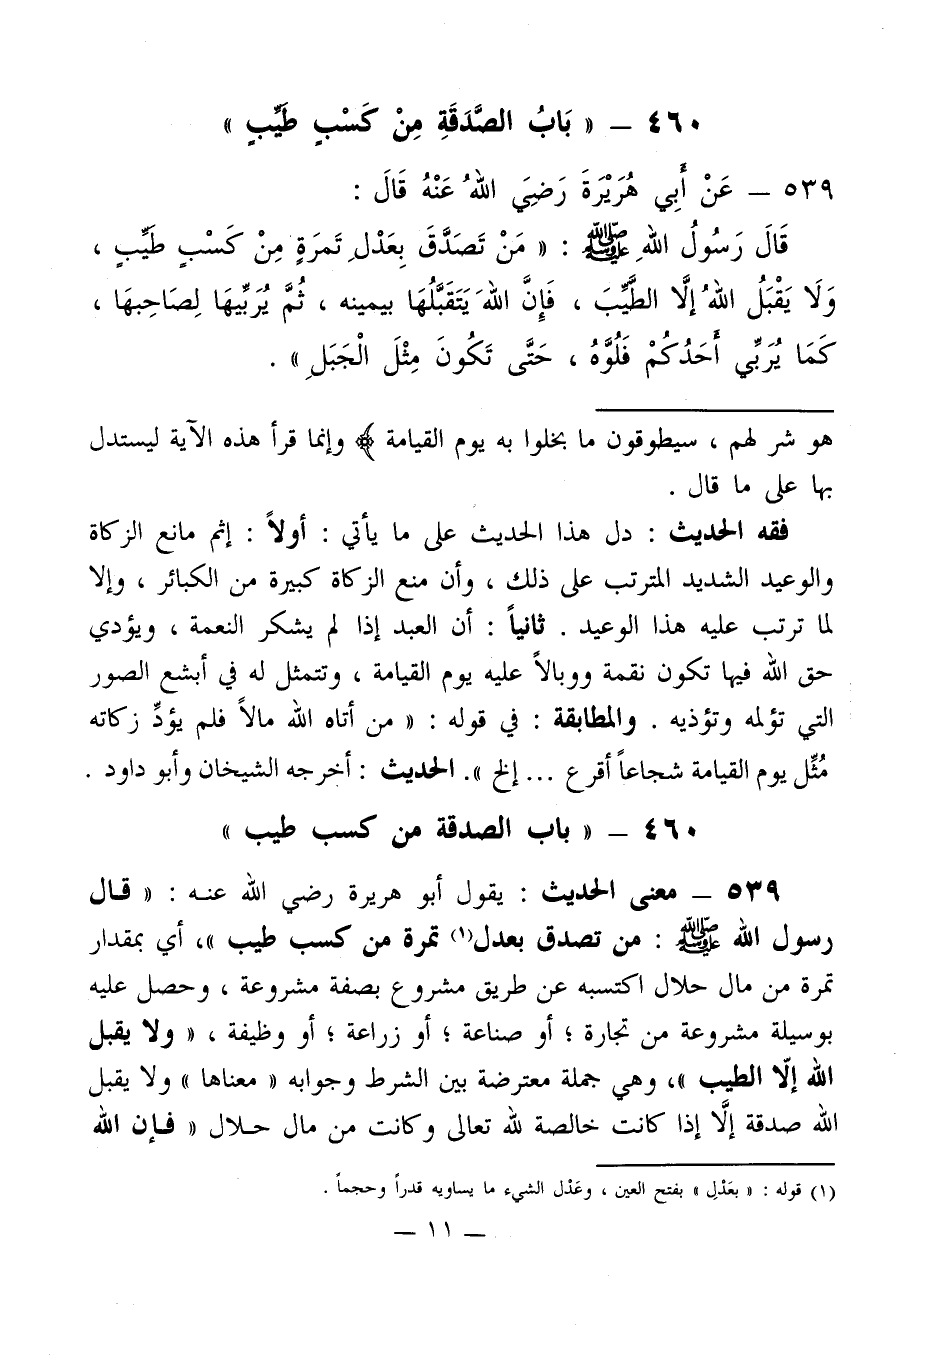 ٤٦٠ ـ « بَابُ الصَّدَقَةِ مِنْ كَسْبٍ طَيِّبٍ »
٥٣٩ ـ عَنْ أَبِي هُرَيْرَةَ رَضِيَ اللهُ عَنْهُ قَالَ :
قَالَ رَسُولُ اللهِ ﷺ : « مَنْ تَصَدَّقَ بِعَدْلِ تَمرَةٍ مِنْ كَسْبٍ طَيِّبٍ ،
وَلَا يَقْبَلُ اللهُ إلَّا الطَّيِّبَ ، فَإِنَّ اللهَ يَتَقَبَّلُهَا بيمينه ، ثُمَّ يُرَبِّيهَا لِصَاحِبهَا ،
كَمَا يُرَبِّي أَحَدُكُمْ فَلُوَّهُ ، حَتَّى تَكُونَ مِثْلَ الْجَبَلِ » .
هو شر لهم ، سيطوقون ما بخلوا به يوم القيامة ﴾ وإنما قرأ هذه الآية ليستدل
بها على ما قال .
فقه الحديث : دل هذا الحديث على ما يأتي : أولاً : إثم مانع الزكاة
والوعيد الشديد المترتب على ذلك ، وأن منع الزكاة كبيرة من الكبائر ، وإلا
لما ترتب عليه هذا الوعيد . ثانياً : أن العبد إذا لم يشكر النعمة ، ويؤدي
حق الله فيها تكون نقمة ووبالاً عليه يوم القيامة ، وتتمثل له في أبشع الصور
التي تؤلمه وتؤذيه . والمطابقة : في قوله : « من أتاه الله مالاً فلم يؤدِّ زكاته
مُثِّل يوم القيامة شجاعاً أقرع ... إلخ ». الحديث : أخرجه الشيخان وأبو داود .
٤٦٠ ـ « باب الصدقة من كسب طيب »
٥٣٩ ـ معنى الحديث : يقول أبو هريرة رضي الله عنه : « قال
رسول الله ﷺ : من تصدق بعدل(١) تمرة من كسب طيب »، أي بمقدار
تمرة من مال حلال اكتسبه عن طريق مشروع بصفة مشروعة ، وحصل عليه
بوسيلة مشروعة من تجارة ؛ أو صناعة ؛ أو زراعة ؛ أو وظيفة ، « ولا يقبل
الله إلّا الطيب »، وهي جملة معترضة بين الشرط وجوابه « معناها » ولا يقبل
الله صدقة إلَّا إذا كانت خالصة لله تعالى وكانت من مال حلال « فإن الله
(١) قوله : « بعَدْلِ » بفتح العين ، وعَدْل الشيء ما يساويه قدراً وحجماً .
ـ ١١ ـ